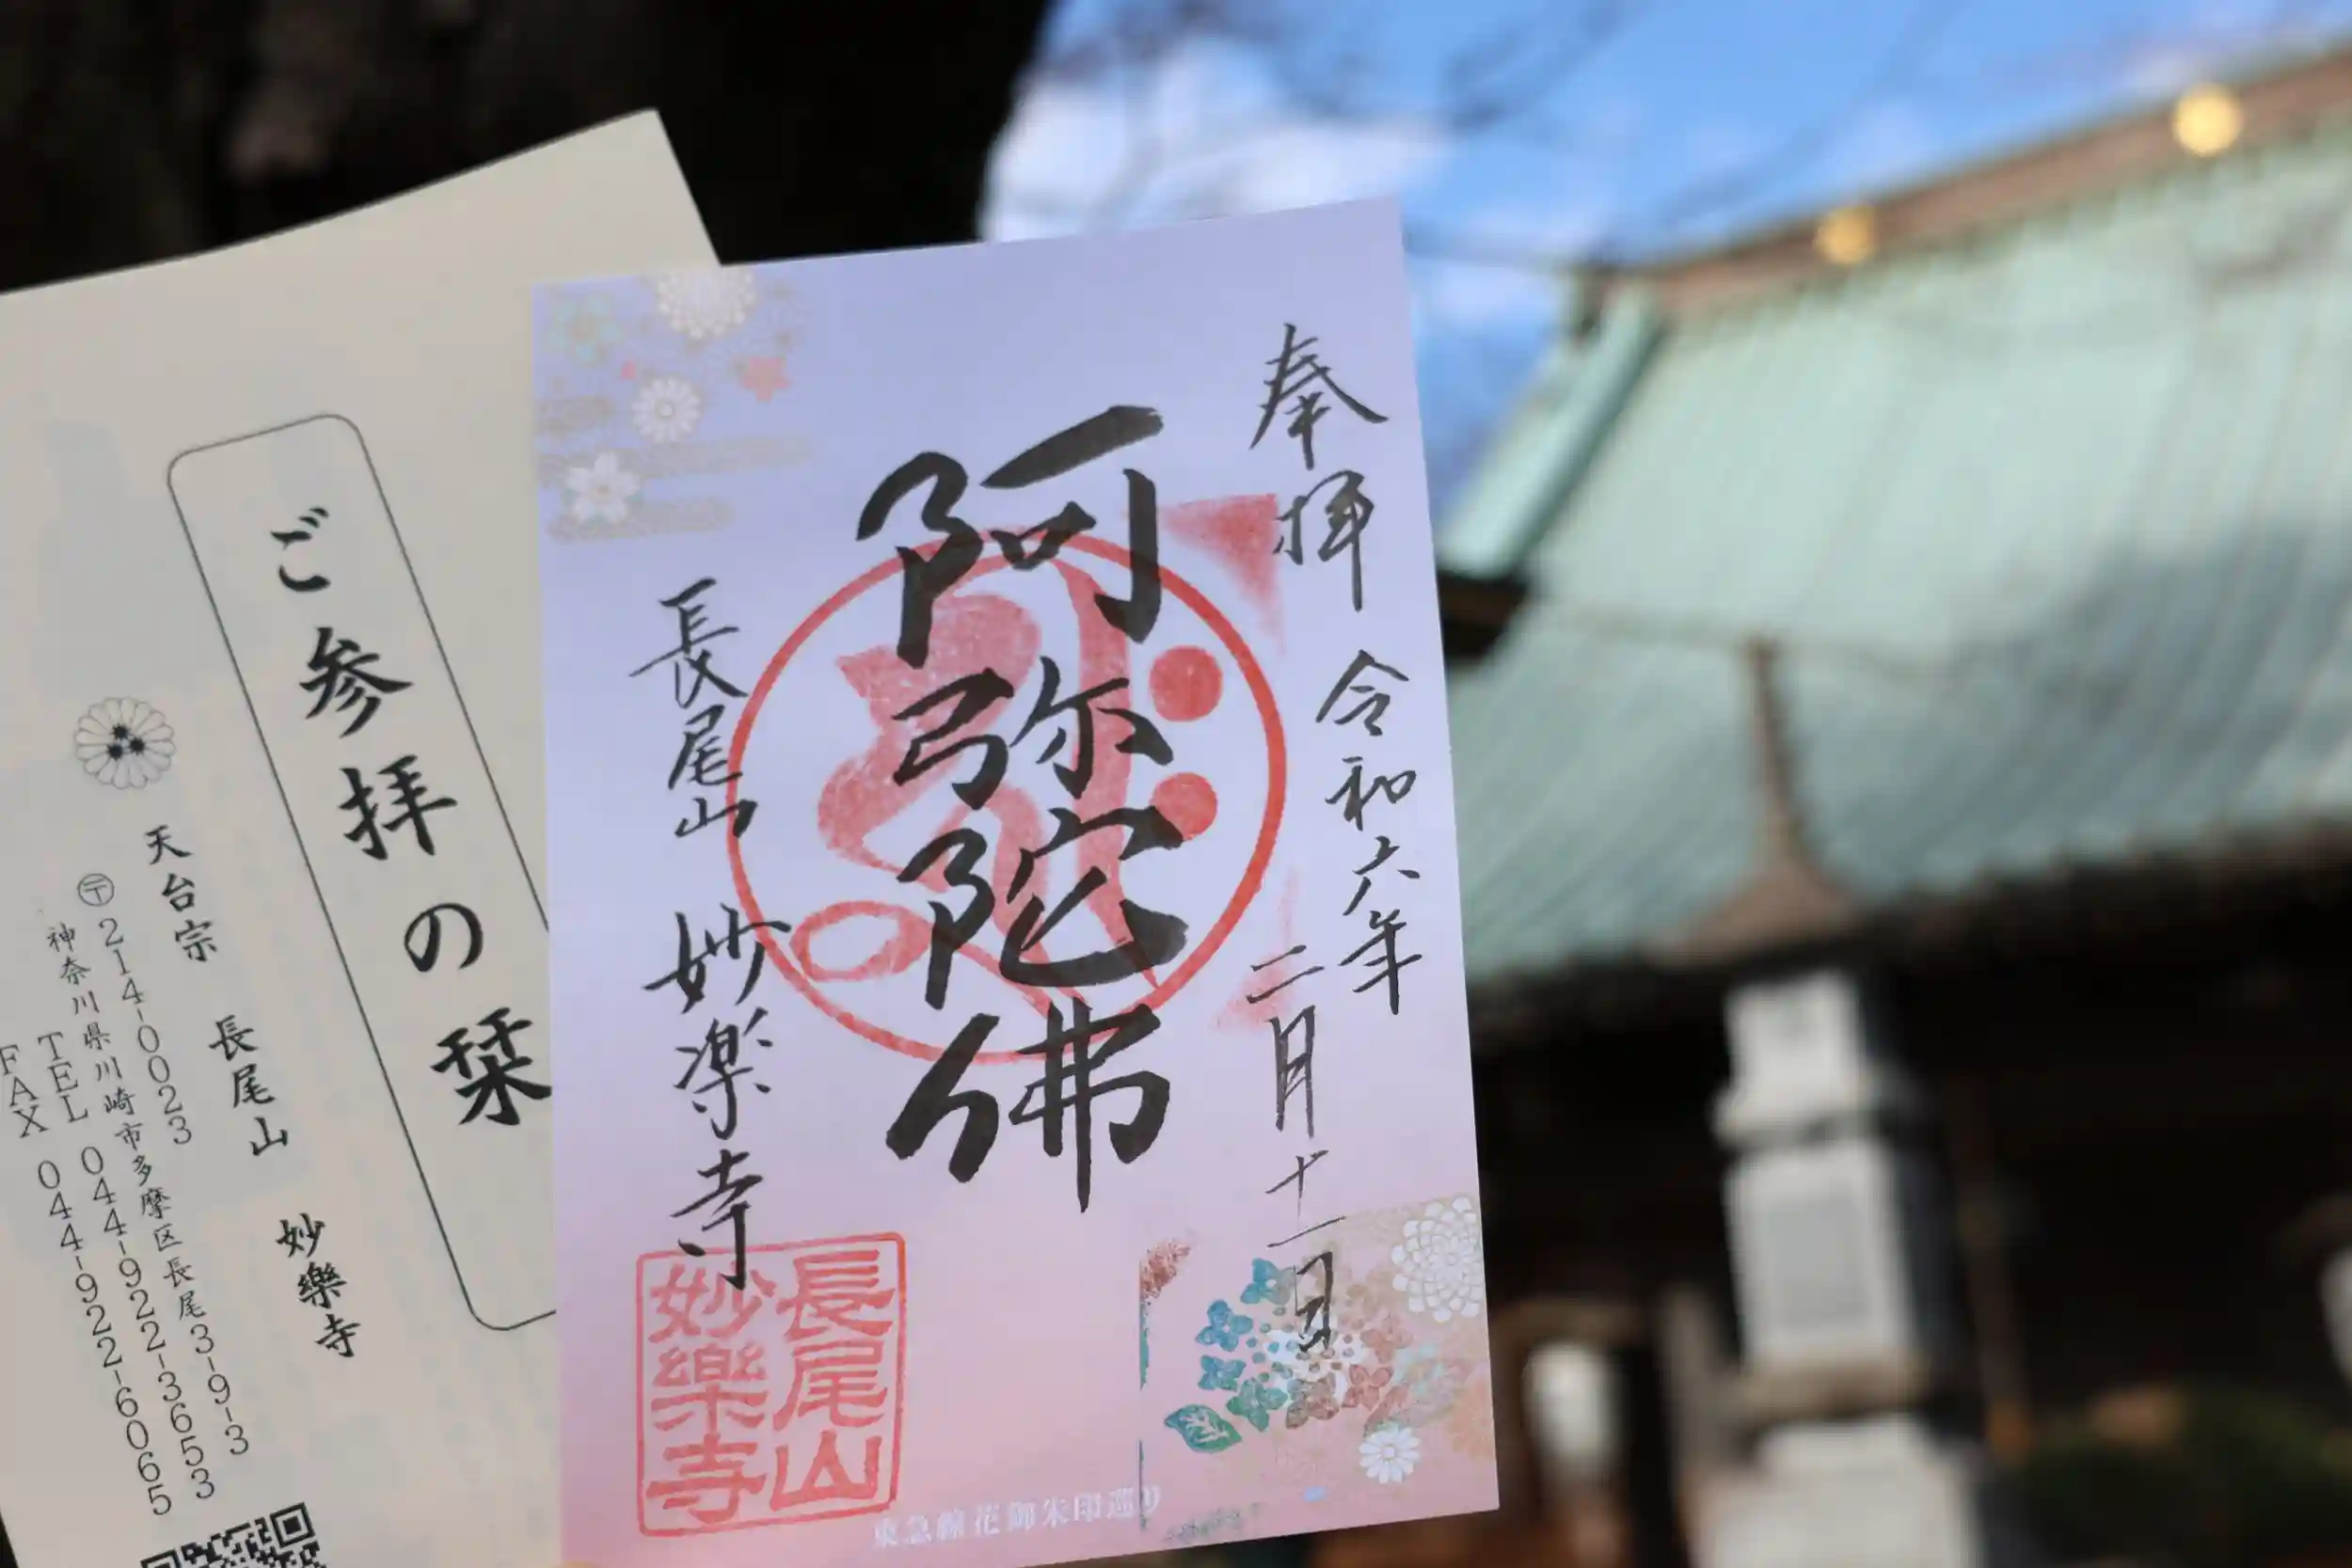 奉拝 令和六年
二月十一日
阿弥陀佛
長尾山 妙楽寺
長尾山
妙樂寺
東急線花御朱印巡り
ご参拝の栞
天台宗 長尾山 妙樂寺
〒214-0023
神奈川県川崎市多摩区長尾3-9-3
TEL 044-922-3653
FAX 044-922-6065